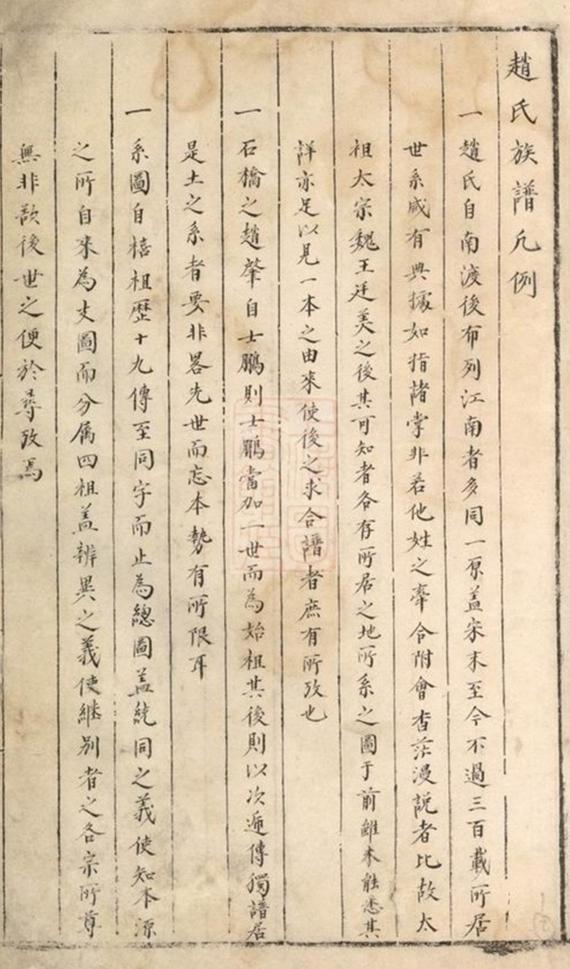 趙氏族譜凡例
一趙氏自南渡後布列江南者多同一原盖宋末至今不過三百載所居
世系咸有典據如指諸掌非若他姓之牽合附會杳茫漫説者比故太
祖太宗魏王廷美之後其可知者各存所居之地所系之圖于前雖未能悉其
詳亦足以見一本之由來使後之求合譜者庶有所攷也
一石橋之趙肇自士鵬則士鵬當加一世而為始祖其後則以次遞傳獨譜居
是土之系者要非畧先世而忘本勢有所限耳
一系圖自禧祖歷十九傳至同字而止為總圖盖統同之義使知本源
之所自來為支圖而分屬四祖盖辨異之義使継别者之各宗所尊
無非欲後世之便於尋攷焉